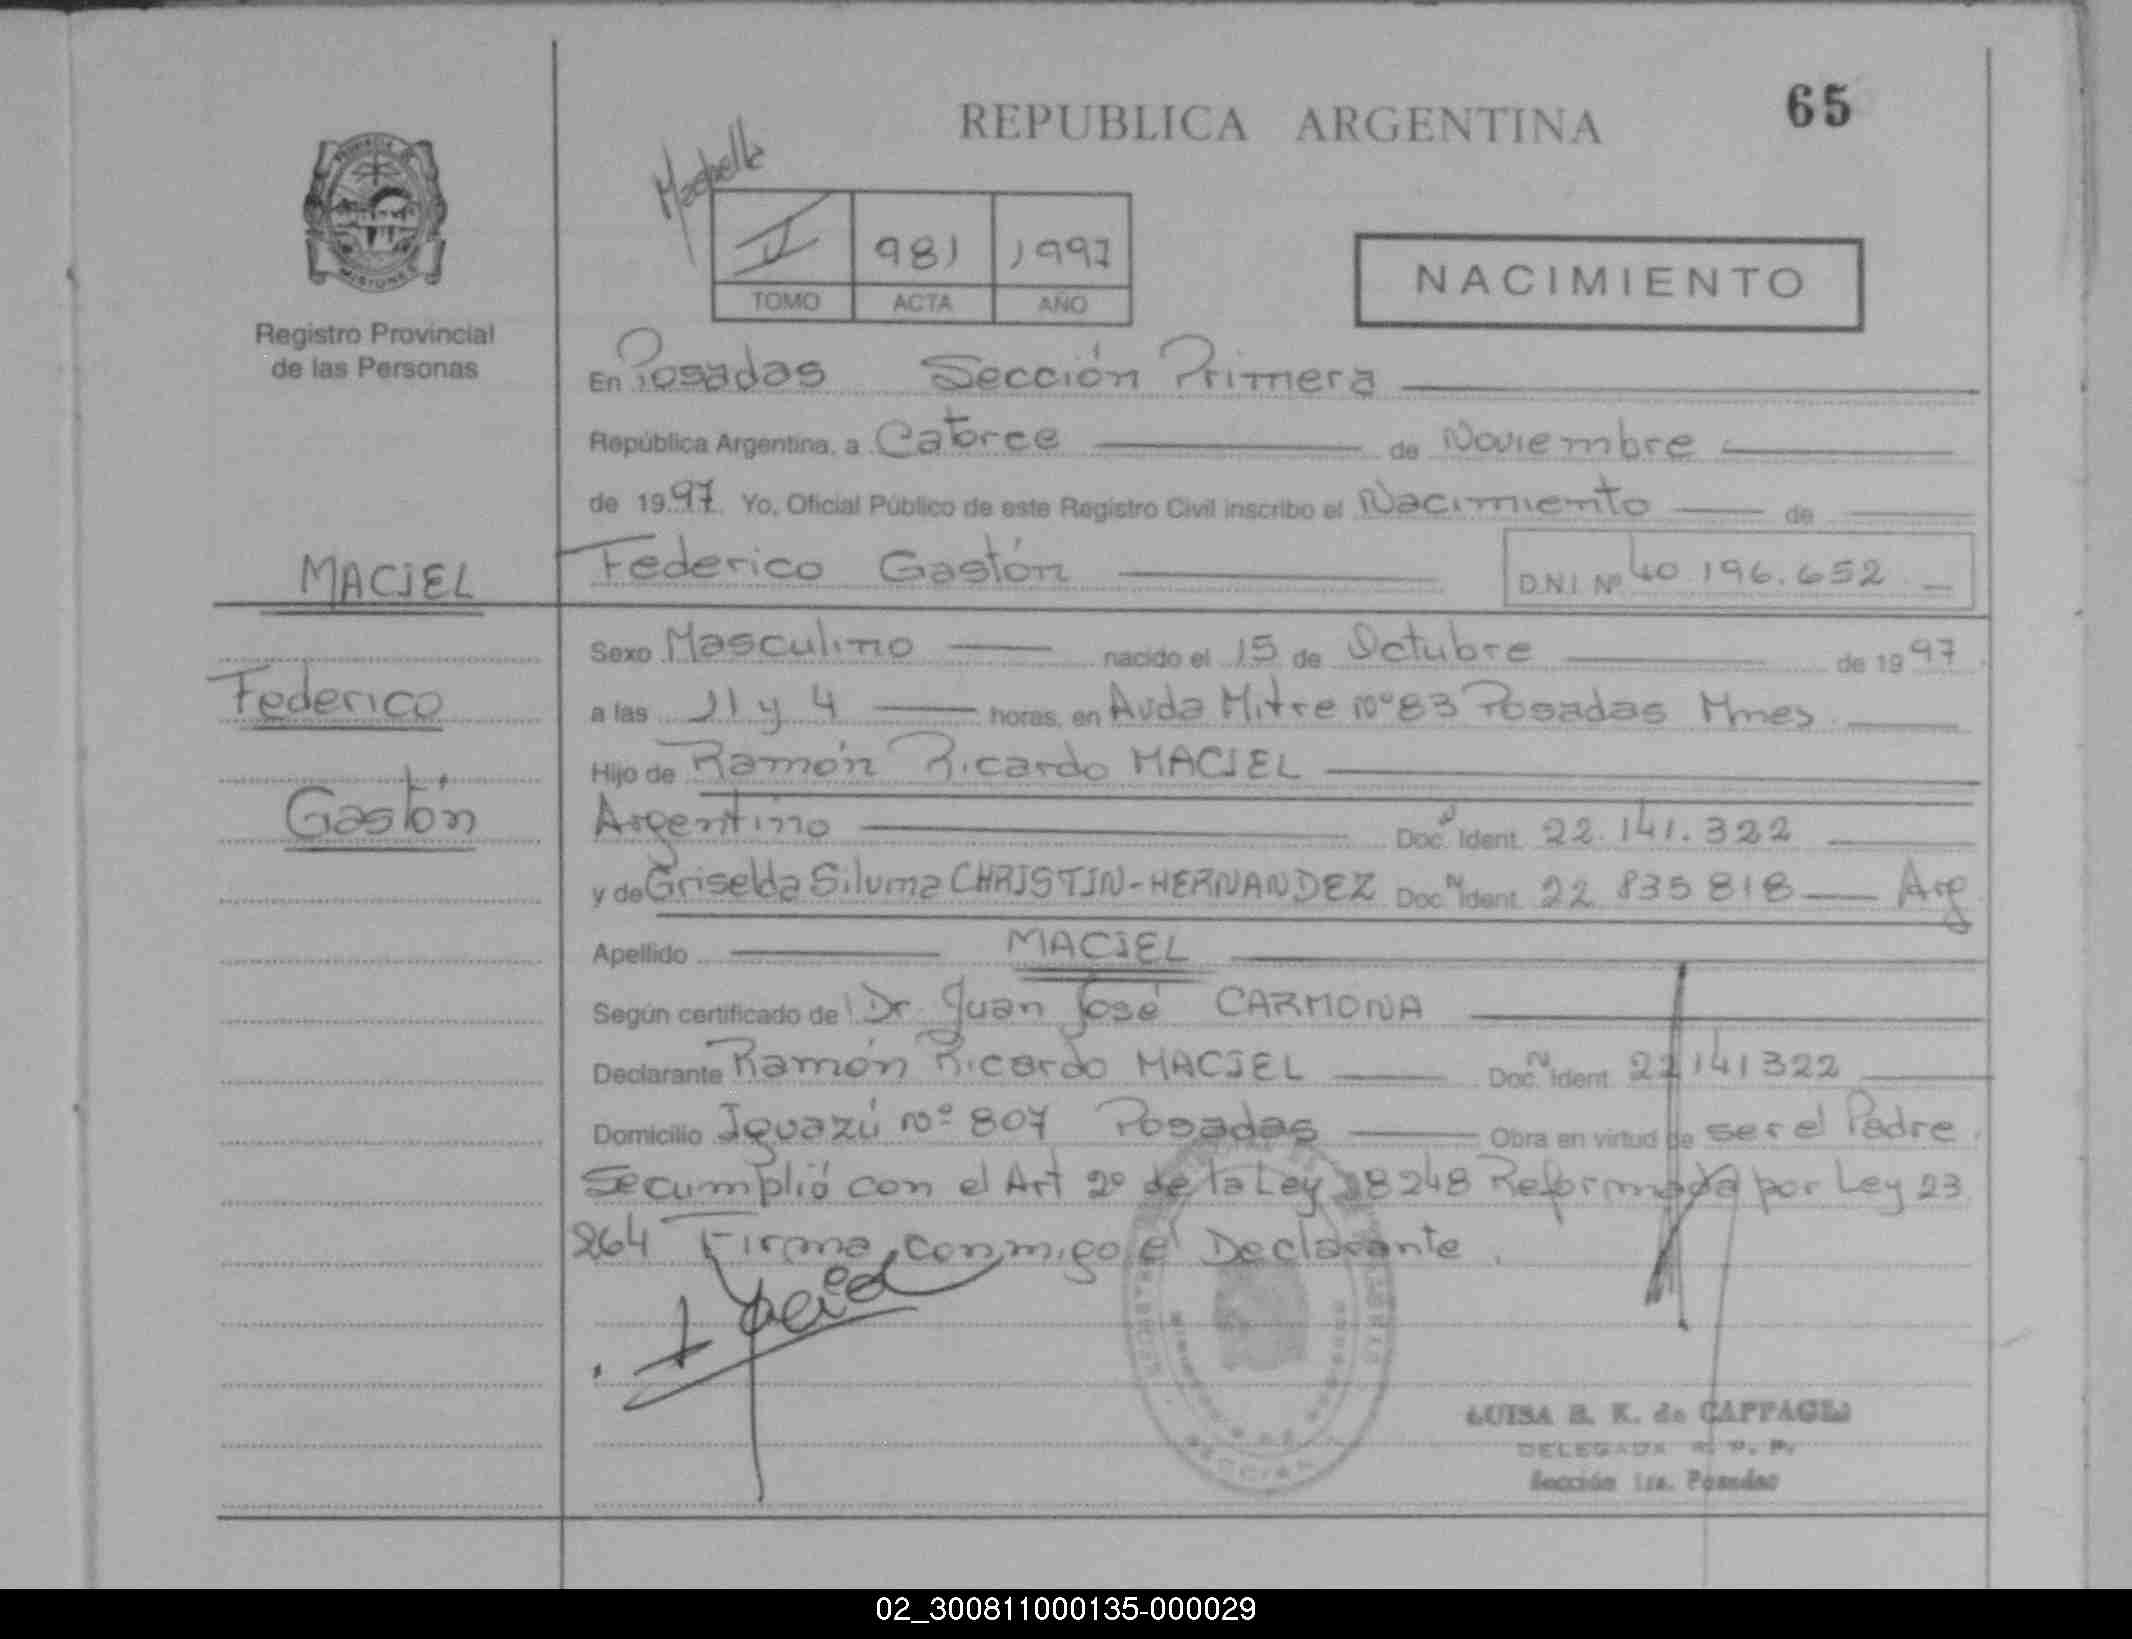 REPUBLICA ARGENTINA
65
II 981 1997
TOMO ACTA AÑO
NACIMIENTO
MISIONES
Registro Provincial
de las Personas
En Posadas Sección Primera
República Argentina, a Catorce de Noviembre
de 1997 Yo, Oficial Público de este Registro Civil inscribo el Nacimiento de
MACIEL
Federico Gastón D.N.I. Nº 40 196.652
Sexo Masculino nacido el 15 de Octubre de 1997
Federico
a las 11 y 4 horas, en Avda Mitre Nº 83 Posadas Mnes.
Hijo de Ramón Ricardo MACIEL
Gastón
Argentino Doc. Ident. 22.141.322
y de Griselda CHRISTIN-HERNANDEZ Doc. Ident. 22 835 818 Arg
Apellido MACIEL
Según certificado de Dr. Juan José CARMONA
Declarante Ramón Ricardo MACIEL Doc. Ident. 22141322
Domicilio Iguazú Nº 807 Posadas Obra en virtud de ser el Padre.
Se cumplió con el Art 2º de la Ley 18248 Reformada por Ley 23
264 Firma conmigo el Declarante.
LUISA B. K. de
DELEGADA R. P. P.
Sección 1ra. Posadas
02_300811000135-000029